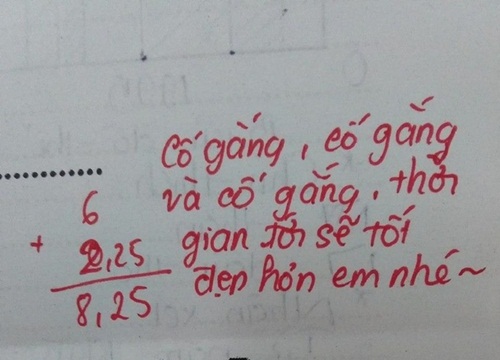 Cố gắng, cố gắng
và cố gắng, thời
gian tới sẽ tốt
đẹp hơn em nhé~
6
+ 2,25
8,25